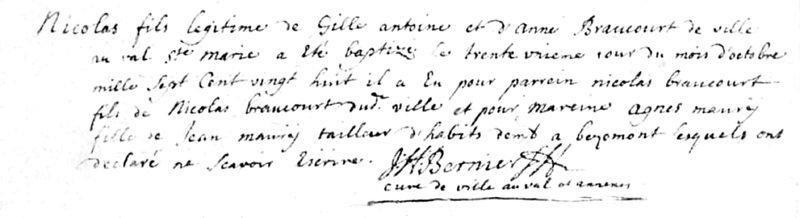 Nicolas fils legitime de Gille antoine et d'anne Braucourt de ville
au val ste marie a eté baptizé le trente unieme jour du mois d'octobre
mille sept Cent vingt huit il a Eu pour parrein nicolas braucourt
fils de Nicolas braucourt dud. ville et pour mareine agnes maurÿ
fille de Jean maurÿ tailleur d'habits demt a bezomont lesquels ont
declaré ne scavoir Escrire. JH Bernier
cure de ville au val et annexes